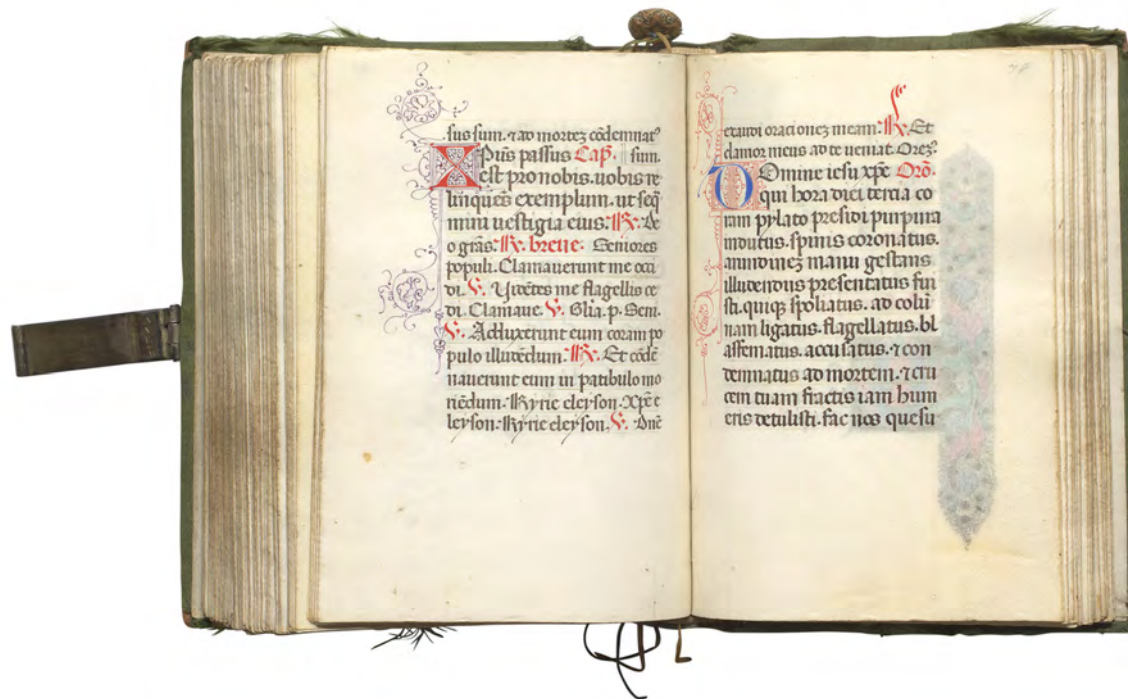 sus sum. ⁊ ad mortez cōdemnatꝰ
Xpūs passus Cap̄. sum.
est pro nobis. uobis re
linquēs exemplum. ut seq̄
mini uestigia eius. ℟. De
o grās. ℟. breue. Seniores
populi. Clamauerunt me occi
di. ℣. Uidētes me flagellis ce
di. Clamaue. ℣. Glīa. p. Seni.
℣. Adduxerunt eum coram po
pulo illudēdum. ℟. Et cōdē
nauerunt eum in patibulo mo
riēdum. Kyrie eleyson. Xpē e
leyson. Kyrie eleyson. ℣. Dnē
exaudi orationez meam. ℟. Et
clamor meus ad te ueniat. Orezꝰ
Domine iesu xpē Orō.
qui hora diei tertia co
ram pylato presidi purpura
indutus. spinis coronatus.
arundinez manu gestans
illudendus presentatus fui
sti. quiqꝫ spoliatus. ad colū
nam ligatus. flagellatus. bl
asfematus. accusatus. ⁊ con
demnatus ad mortem. ⁊ cru
cem tuam fractis iam hum
eris detulisti. fac nos quesu